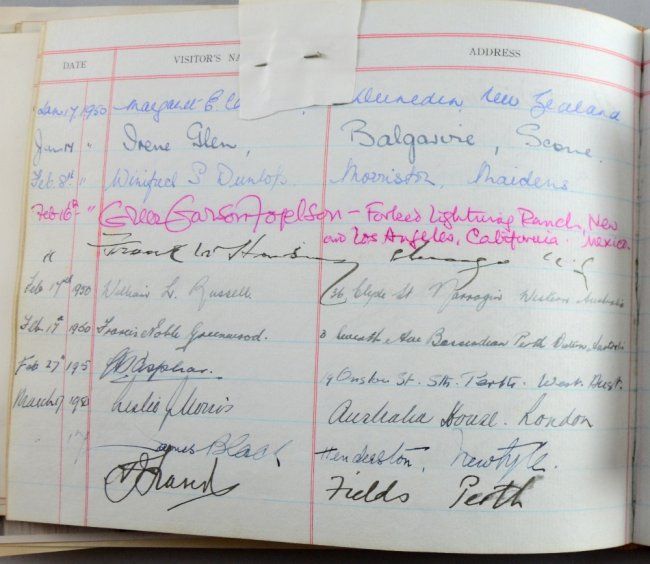 DATE VISITOR'S NA ADDRESS
Jan 17 1950 Margaret E. Dunedin New Zealand
Jan 17 " Irene Glen, Balgarvie, Scone.
Feb. 8th " Winifred S Dunlop. Morriston, Maidens
Feb 16th " Greer Garson Fogelson - Forked Lightning Ranch, New Mexico
and Los Angeles, California.
" Frank W Chicago
Feb 17th 1950 William G. Russell 36, Clyde St Narrogin Western Australia
Feb. 17th 1950 Francis Noble Greenwood. Ave Perth
Feb 27th 195 19 Onslow St. Sth. Perth. West Aust.
March 7 1950 Leslie J Morris Australia House. London
" " James Black Henderston, Newtyle.
Fields Perth